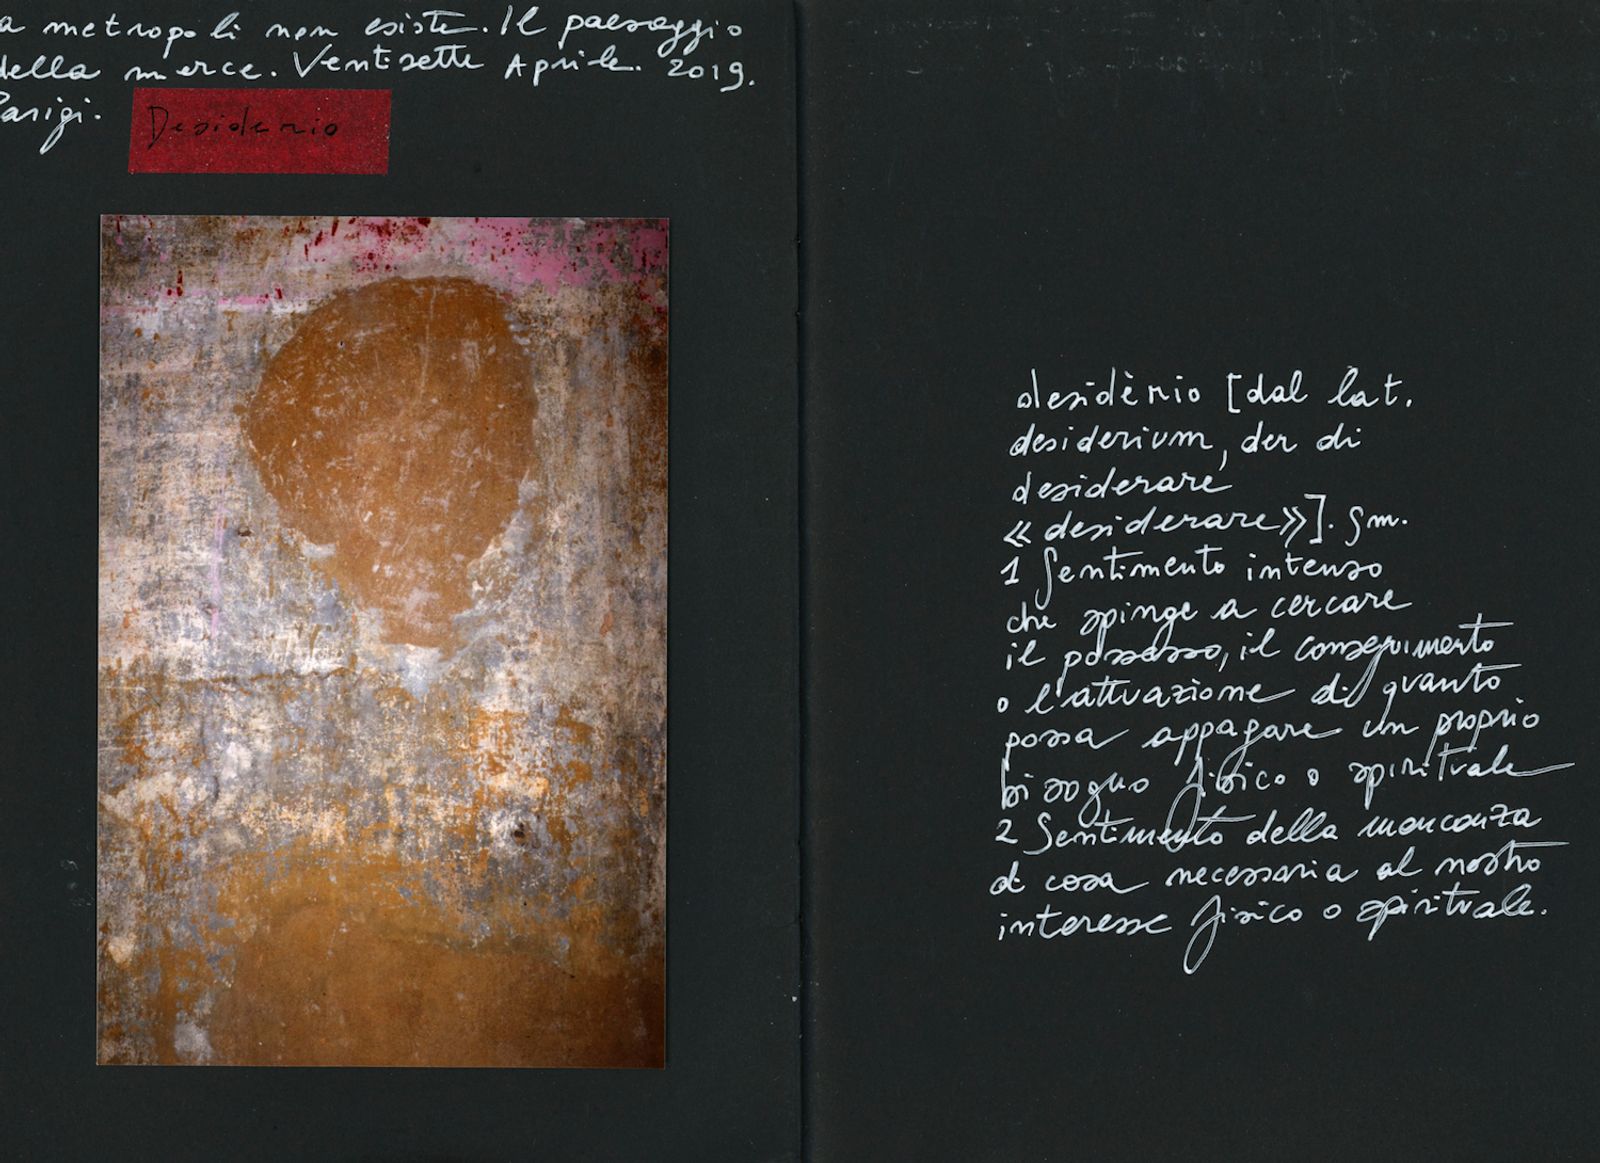 a metropoli non esiste. Il paesaggio
della merce. Ventisette Aprile. 2019.
Parigi.
Desiderio
desidèrio [dal lat.
desiderium, der di
desiderare
«desiderare»]. sm.
1 Sentimento intenso
che spinge a cercare
il possesso, il conseguimento
o l'attuazione di quanto
possa appagare un proprio
bisogno fisico o spirituale
2 Sentimento della mancanza
di cosa necessaria al nostro
interesse fisico o spirituale.